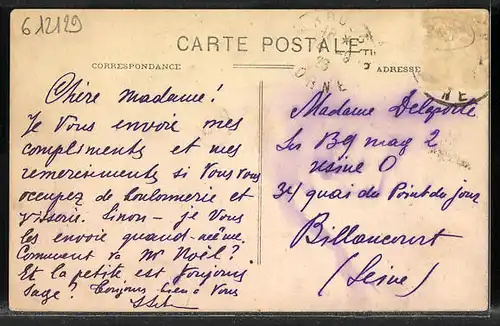 612129
CARTE POSTALE
CORRESPONDANCE
ADRESSE
ORNE
NE
Chère Madame!
Je Vous envoie mes
compliments et mes
remerciments si Vous Vous
occupez de boulonnerie et
visserie. Sinon - je Vous
les envoie quand-même.
Comment va Mr Noël?
Et la petite est toujours
sage? Toujours bien à Vous
Madame Delaporte
Sce B9 mag 2
usine O
34 quai du Point du Jour
Billancourt
(Seine)